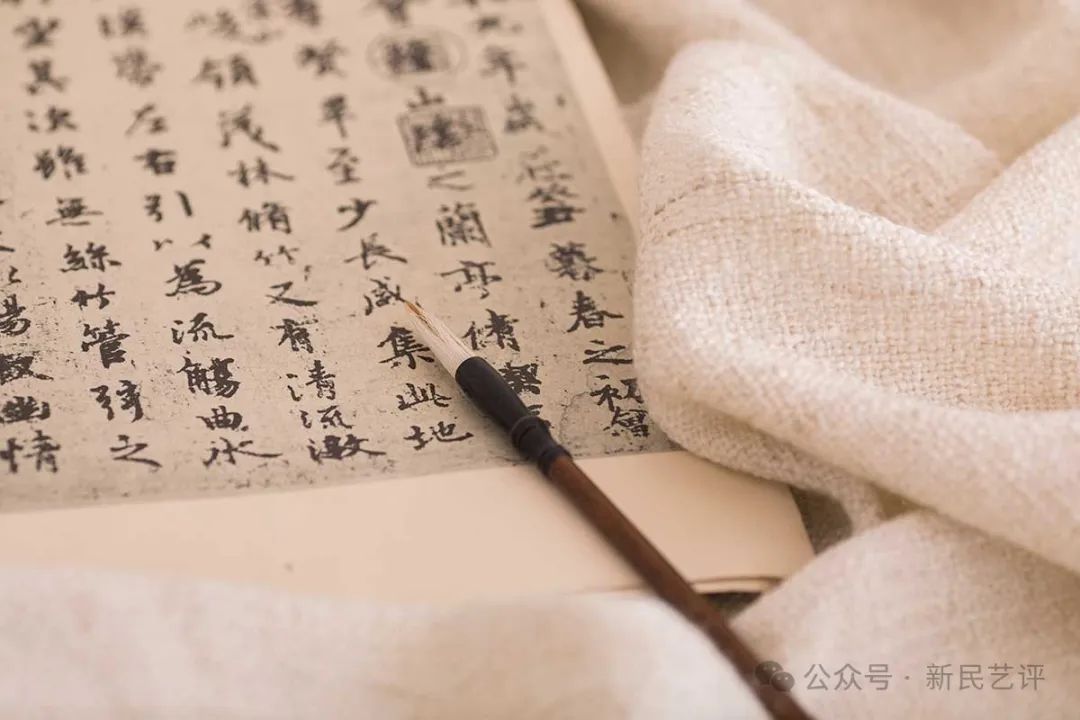 九年歲在癸丑暮春之初會
會稽山陰之蘭亭脩禊事
賢畢至少長咸集此地
領茂林脩竹又有清流激
暎帶左右引以為流觴曲水
坐其次雖無絲竹管弦之
暢敘幽情
公众号 · 新民艺评